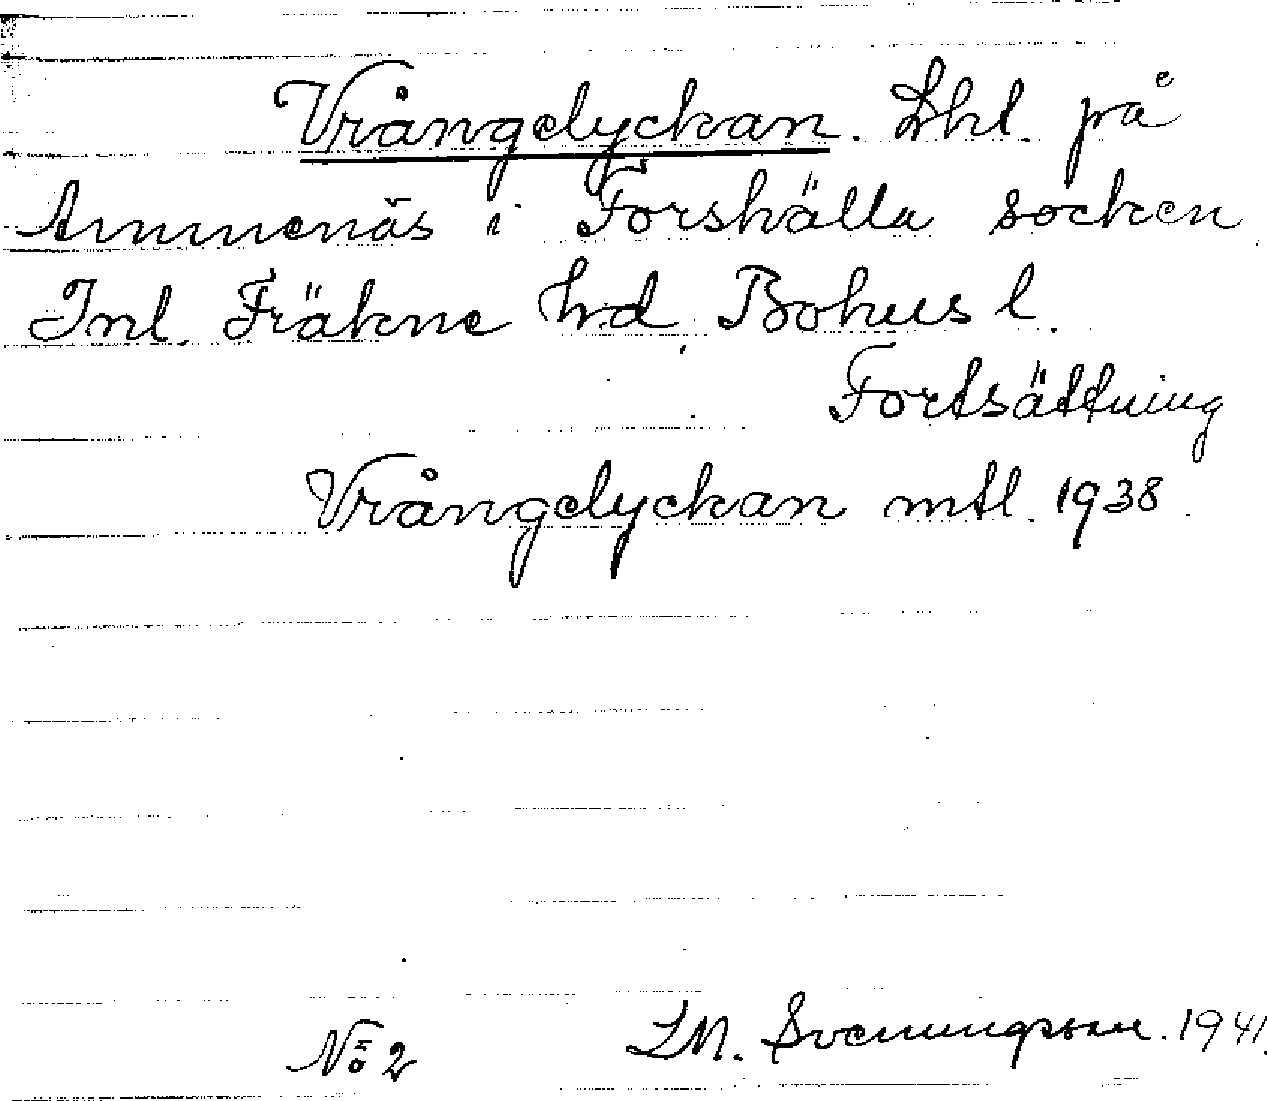 Vrångelyckan. Lhl. på
Ammenäs i Forshälla socken
Inl. Fräkne hd. Bohus l.
Fortsättning
Vrångelyckan mtl. 1938.
No 2 LM. Svenungsson. 1941.